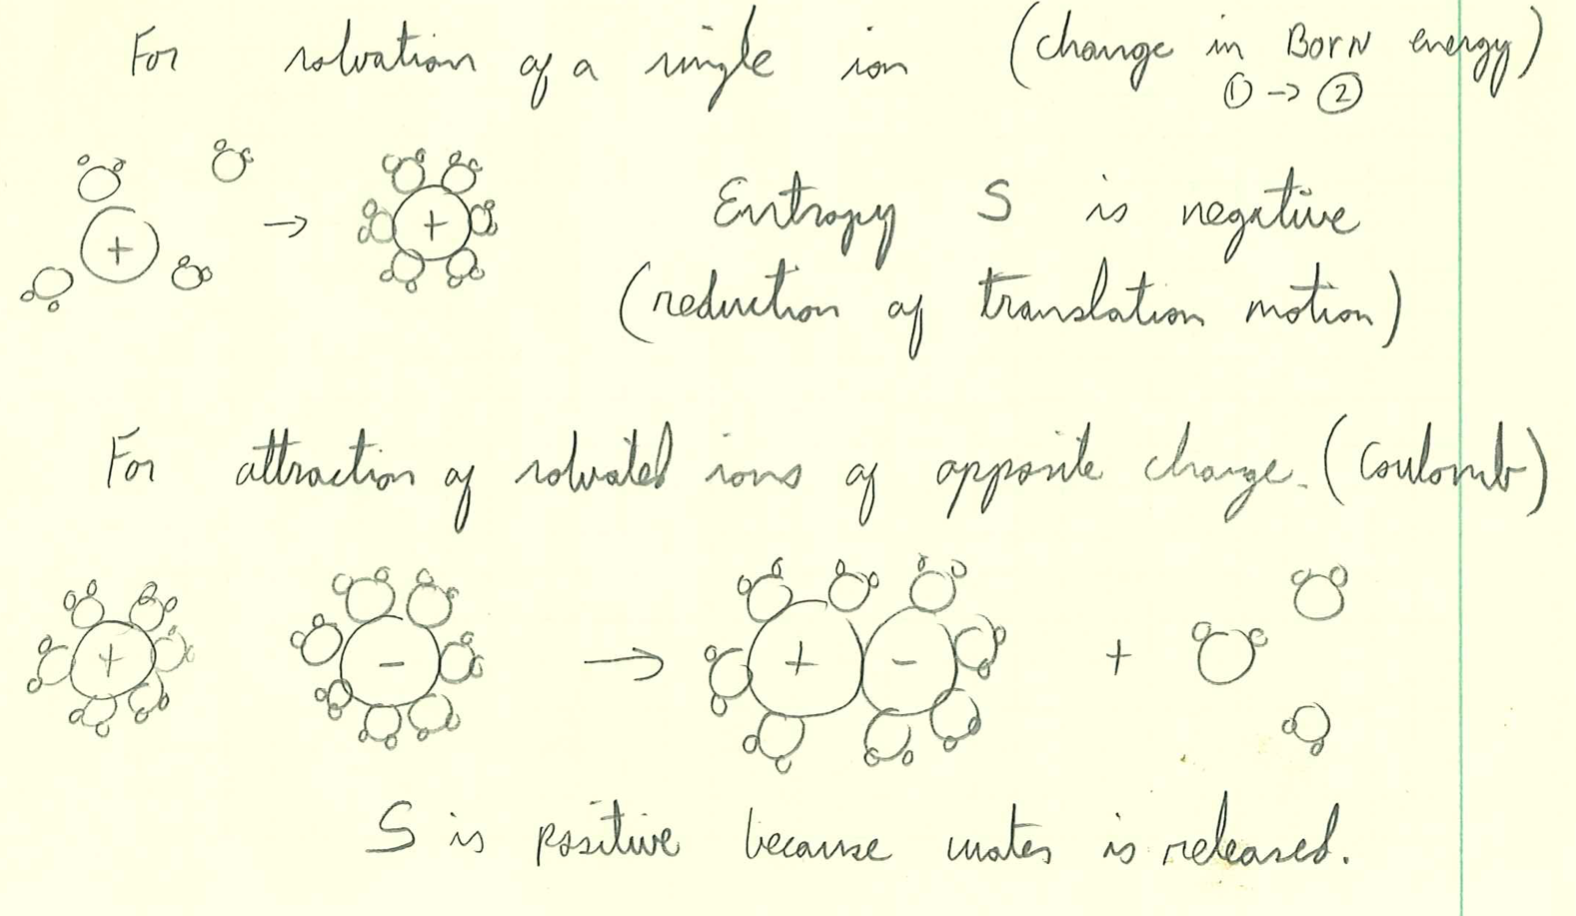 For solvation of a single ion (change in Born energy)
① → ②
+ → +
Entropy S is negative
(reduction of translation motion)
For attraction of solvated ions of opposite charge. (Coulomb)
+ - → + - +
S is positive because water is released.